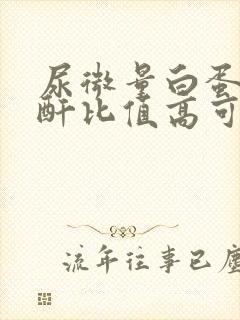 尿微量白蛋
酐比值高可
流年往事已尘